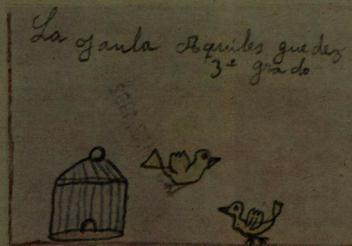 La jaula Aquiles guedez
3º grado